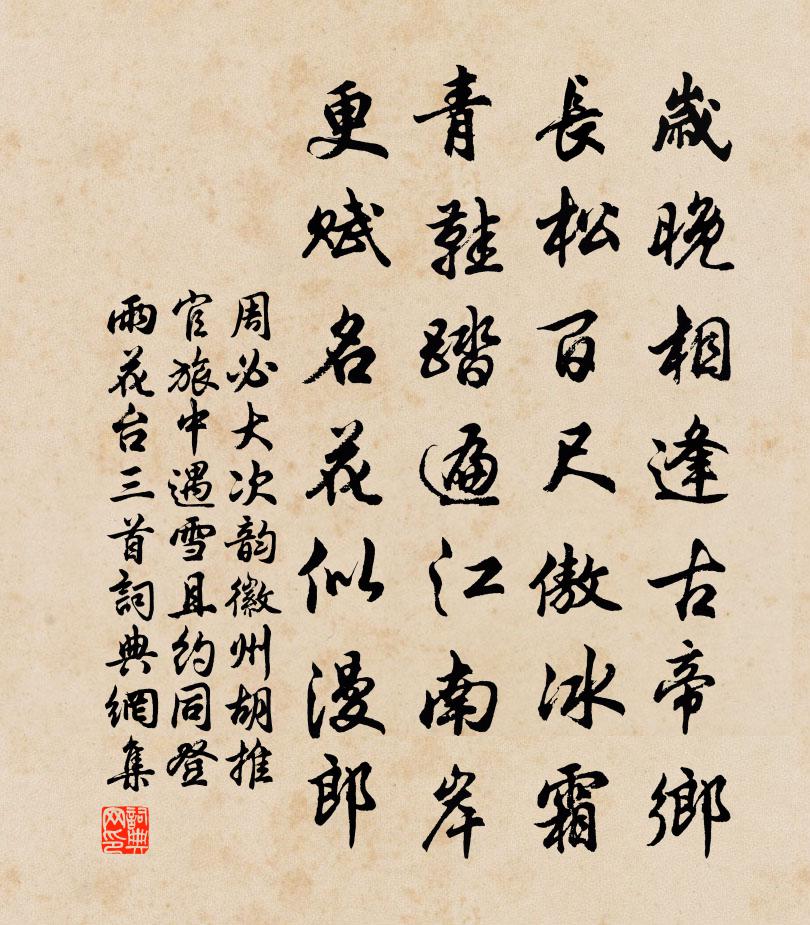 歲晚相逢古帝鄉
長松百尺傲冰霜
青鞋踏遍江南岸
更賦名花似漫郎
周必大次韵徽州胡推
官旅中遇雪且約同登
雨花台三首詞典網集
詞典网印